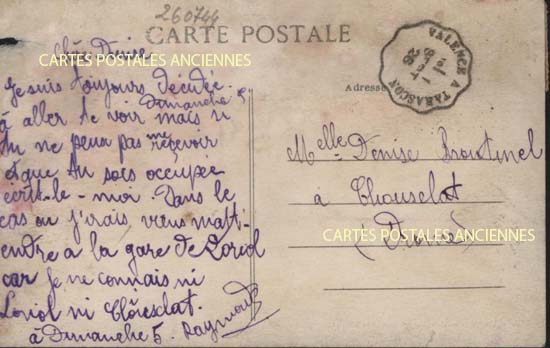 260744
CARTE POSTALE
Chère Denise
Je suis toujours décidée
à aller te voir Dimanche 5
mais si
tu ne peux pas me recevoir
et que tu sois occupée
écrit-le-moi. Dans le
cas où j'irais viens m'att-
endre à la gare de Loriol
car je ne connais ni
Loriol ni
à Dimanche 5. Raymonde
VALENCE A TARASCON
26
Adresse
Melle Denise
à
(Drôme)
CARTES POSTALES ANCIENNES
CARTES POSTALES ANCIENNES